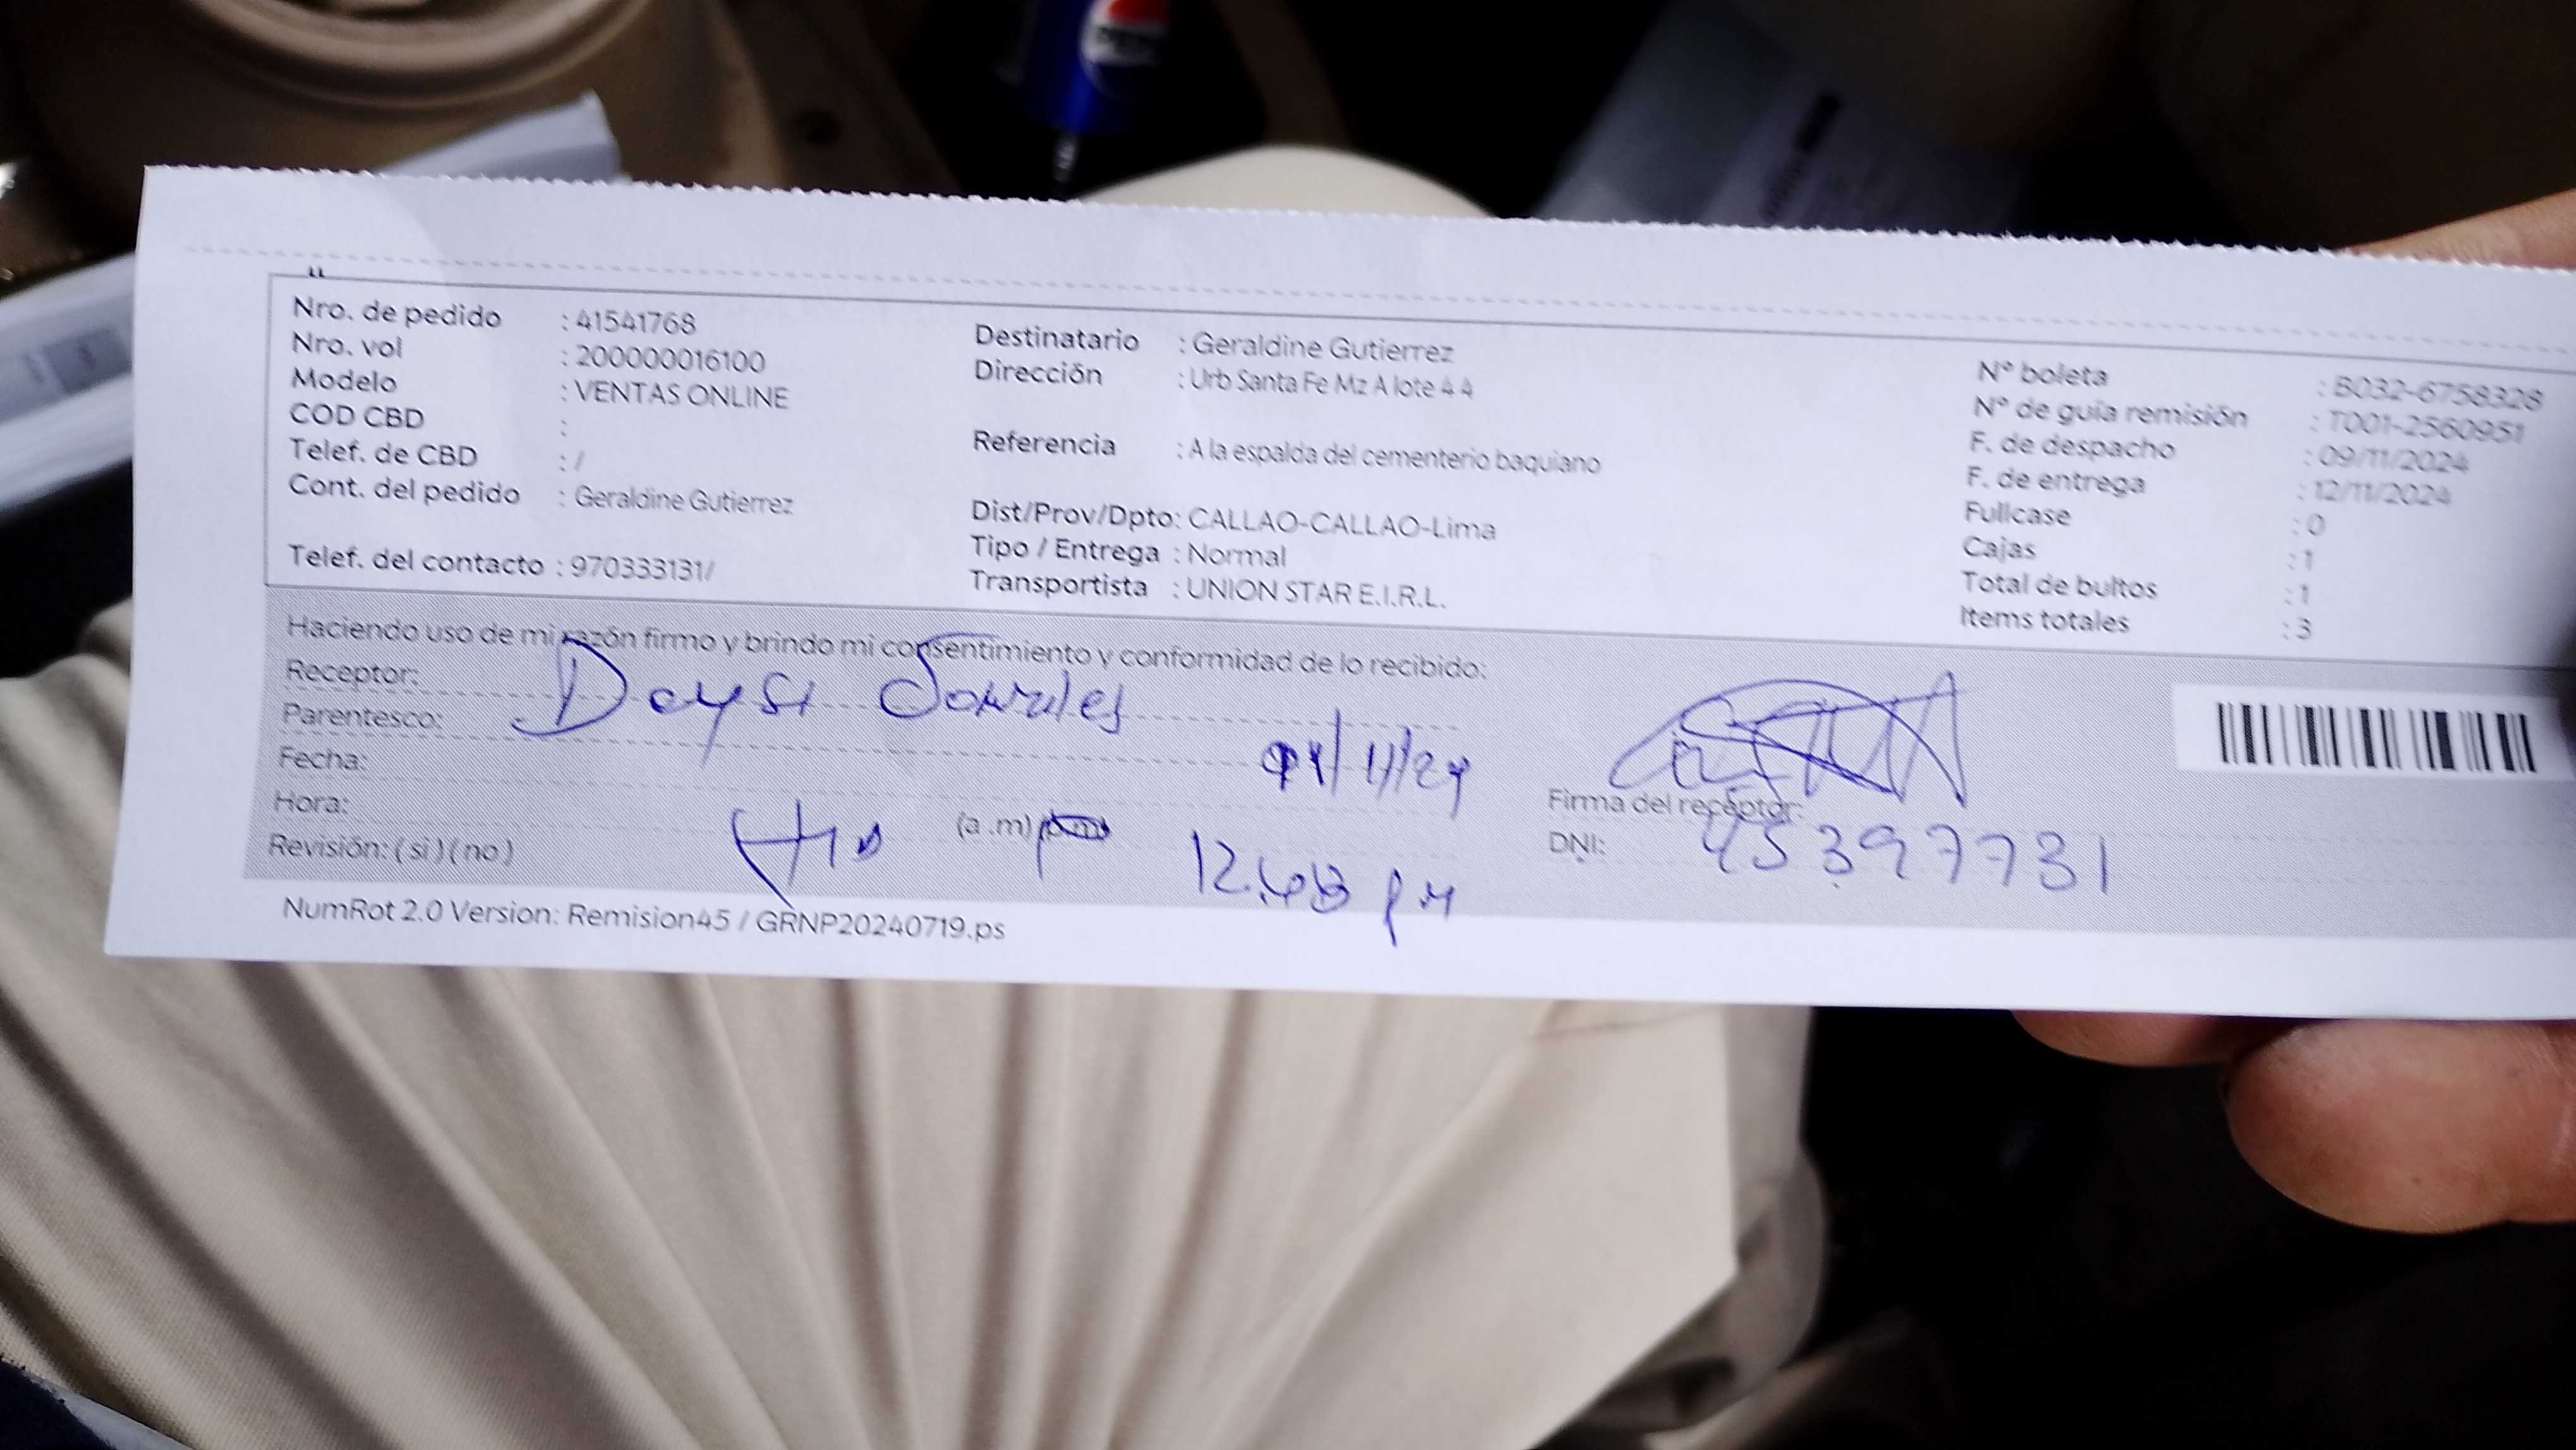 Nro. de pedido : 41541768
Nro. vol : 200000016100
Modelo : VENTAS ONLINE
COD CBD :
Telef. de CBD : /
Cont. del pedido : Geraldine Gutierrez
Telef. del contacto : 970333131/
Destinatario : Geraldine Gutierrez
Dirección : Urb Santa Fe Mz A lote 4 4
Referencia : A la espalda del cementerio baquiano
Dist/Prov/Dpto: CALLAO-CALLAO-Lima
Tipo / Entrega : Normal
Transportista : UNION STAR E.I.R.L.
N° boleta : B032-6758328
N° de guía remisión : T001-2560951
F. de despacho : 09/11/2024
F. de entrega : 12/11/2024
Fullcase : 0
Cajas : 1
Total de bultos : 1
Items totales : 3
Haciendo uso de mi razón firmo y brindo mi consentimiento y conformidad de lo recibido:
Receptor: Deysi
Parentesco:
Fecha:
Hora: (a .m)
Revisión: ( si ) ( no )
Firma del receptor:
DNI: 45397731
NumRot 2.0 Version: Remision45 / GRNP20240719.ps